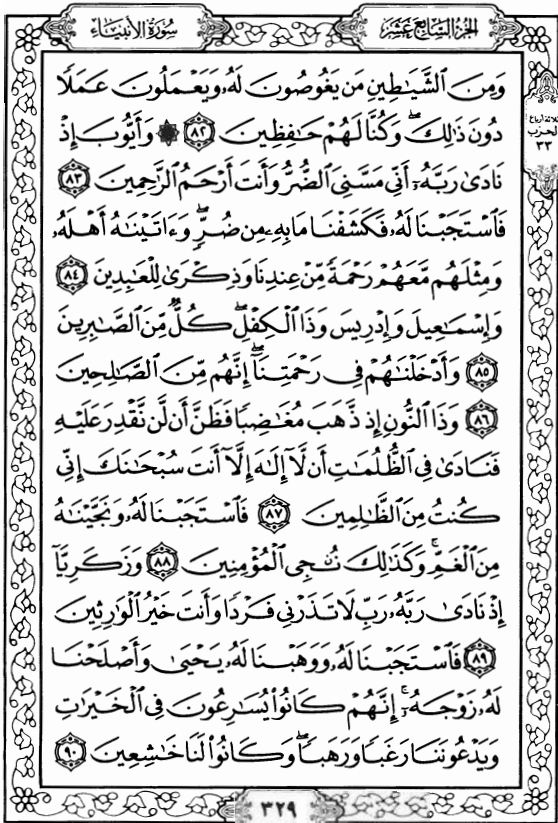 الجزء السابع عشر
سورة الأنبياء
وَمِنَ ٱلشَّيَٰطِينِ مَن يَغُوصُونَ لَهُۥ وَيَعْمَلُونَ عَمَلًا
دُونَ ذَٰلِكَ ۖ وَكُنَّا لَهُمْ حَٰفِظِينَ ٨٢ ۞ وَأَيُّوبَ إِذْ
ثلاثة أرباع
الحزب
٣٣
نَادَىٰ رَبَّهُۥٓ أَنِّى مَسَّنِىَ ٱلضُّرُّ وَأَنتَ أَرْحَمُ ٱلرَّٰحِمِينَ ٨٣
فَٱسْتَجَبْنَا لَهُۥ فَكَشَفْنَا مَا بِهِۦ مِن ضُرٍّ ۖ وَءَاتَيْنَٰهُ أَهْلَهُۥ
وَمِثْلَهُم مَّعَهُمْ رَحْمَةً مِّنْ عِندِنَا وَذِكْرَىٰ لِلْعَٰبِدِينَ ٨٤
وَإِسْمَٰعِيلَ وَإِدْرِيسَ وَذَا ٱلْكِفْلِ ۖ كُلٌّ مِّنَ ٱلصَّٰبِرِينَ
٨٥ وَأَدْخَلْنَٰهُمْ فِى رَحْمَتِنَآ ۖ إِنَّهُم مِّنَ ٱلصَّٰلِحِينَ
٨٦ وَذَا ٱلنُّونِ إِذ ذَّهَبَ مُغَٰضِبًا فَظَنَّ أَن لَّن نَّقْدِرَ عَلَيْهِ
فَنَادَىٰ فِى ٱلظُّلُمَٰتِ أَن لَّآ إِلَٰهَ إِلَّآ أَنتَ سُبْحَٰنَكَ إِنِّى
كُنتُ مِنَ ٱلظَّٰلِمِينَ ٨٧ فَٱسْتَجَبْنَا لَهُۥ وَنَجَّيْنَٰهُ
مِنَ ٱلْغَمِّ ۚ وَكَذَٰلِكَ نُۨجِى ٱلْمُؤْمِنِينَ ٨٨ وَزَكَرِيَّآ
إِذْ نَادَىٰ رَبَّهُۥ رَبِّ لَا تَذَرْنِى فَرْدًا وَأَنتَ خَيْرُ ٱلْوَٰرِثِينَ
٨٩ فَٱسْتَجَبْنَا لَهُۥ وَوَهَبْنَا لَهُۥ يَحْيَىٰ وَأَصْلَحْنَا
لَهُۥ زَوْجَهُۥٓ ۚ إِنَّهُمْ كَانُوا۟ يُسَٰرِعُونَ فِى ٱلْخَيْرَٰتِ
وَيَدْعُونَنَا رَغَبًا وَرَهَبًا ۖ وَكَانُوا۟ لَنَا خَٰشِعِينَ ٩٠
٣٢٩